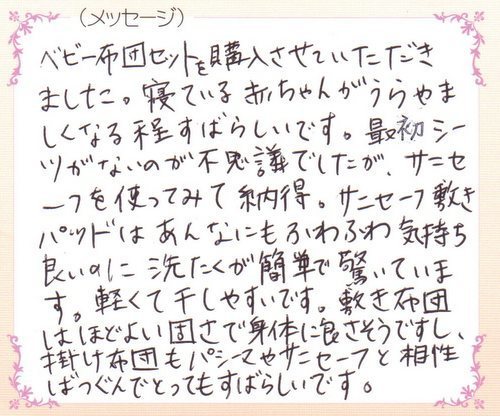 （メッセージ）
ベビー布団セットを購入させていただき
ました。寝ている赤ちゃんがうらやま
しくなる程すばらしいです。最初シー
ツがないのが不思議でしたが、サニセ
ーフを使ってみて納得。サニセーフ敷き
パッドはあんなにもふわふわ気持ち
良いのに洗たくが簡単で驚いていま
す。軽くて干しやすいです。敷き布団
はほどよい固さで身体に良さそうですし、
掛け布団もパシーマやサニセーフと相性
ばつぐんでとってもすばらしいです。